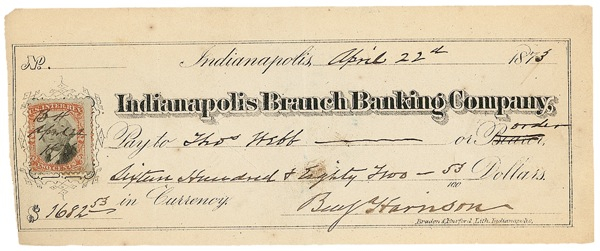 No. Indianapolis, April 22d 1873
Indianapolis Branch Banking Company,
Pay to Thos Webb or Bearer, order
Sixteen Hundred & Eighty Two 53/100 Dollars,
$1682.53 in Currency. Benj Harrison
Braden & Burford Lith. Indianapolis,
U.S. INTER. REV.
B H
April 22